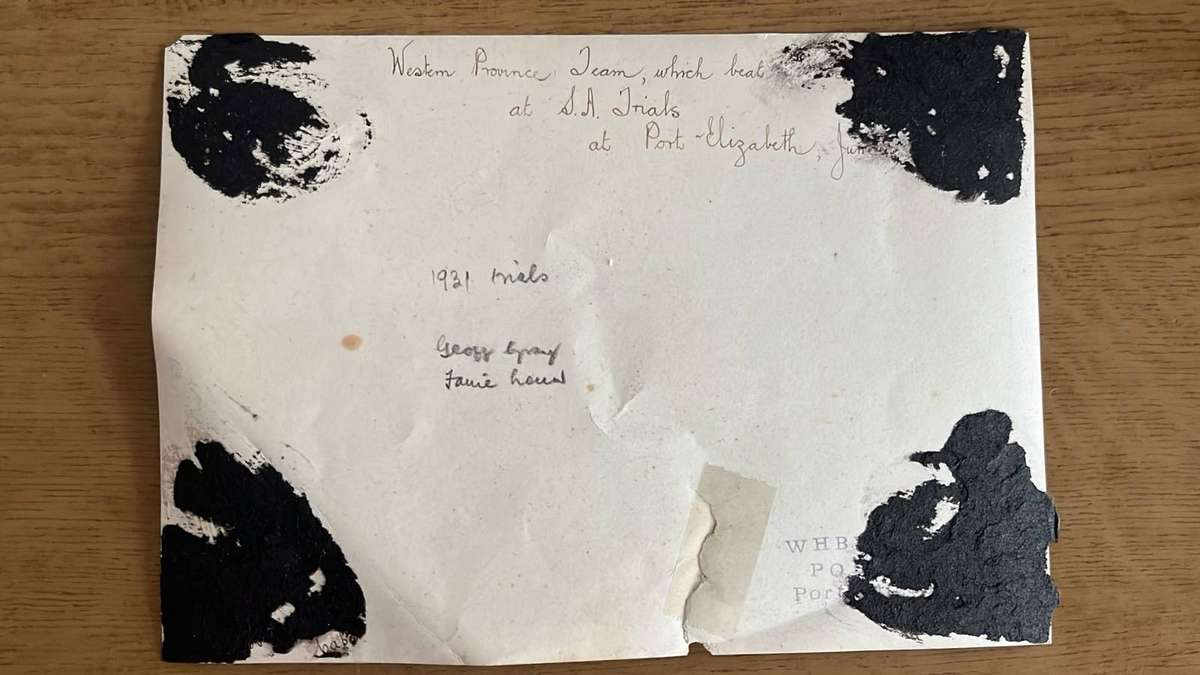 Western Province Team, which beat
at S.A. Trials
at Port Elizabeth,
1931 trials
Geoff Gray
Fanie Louw
WHB
PO
Port